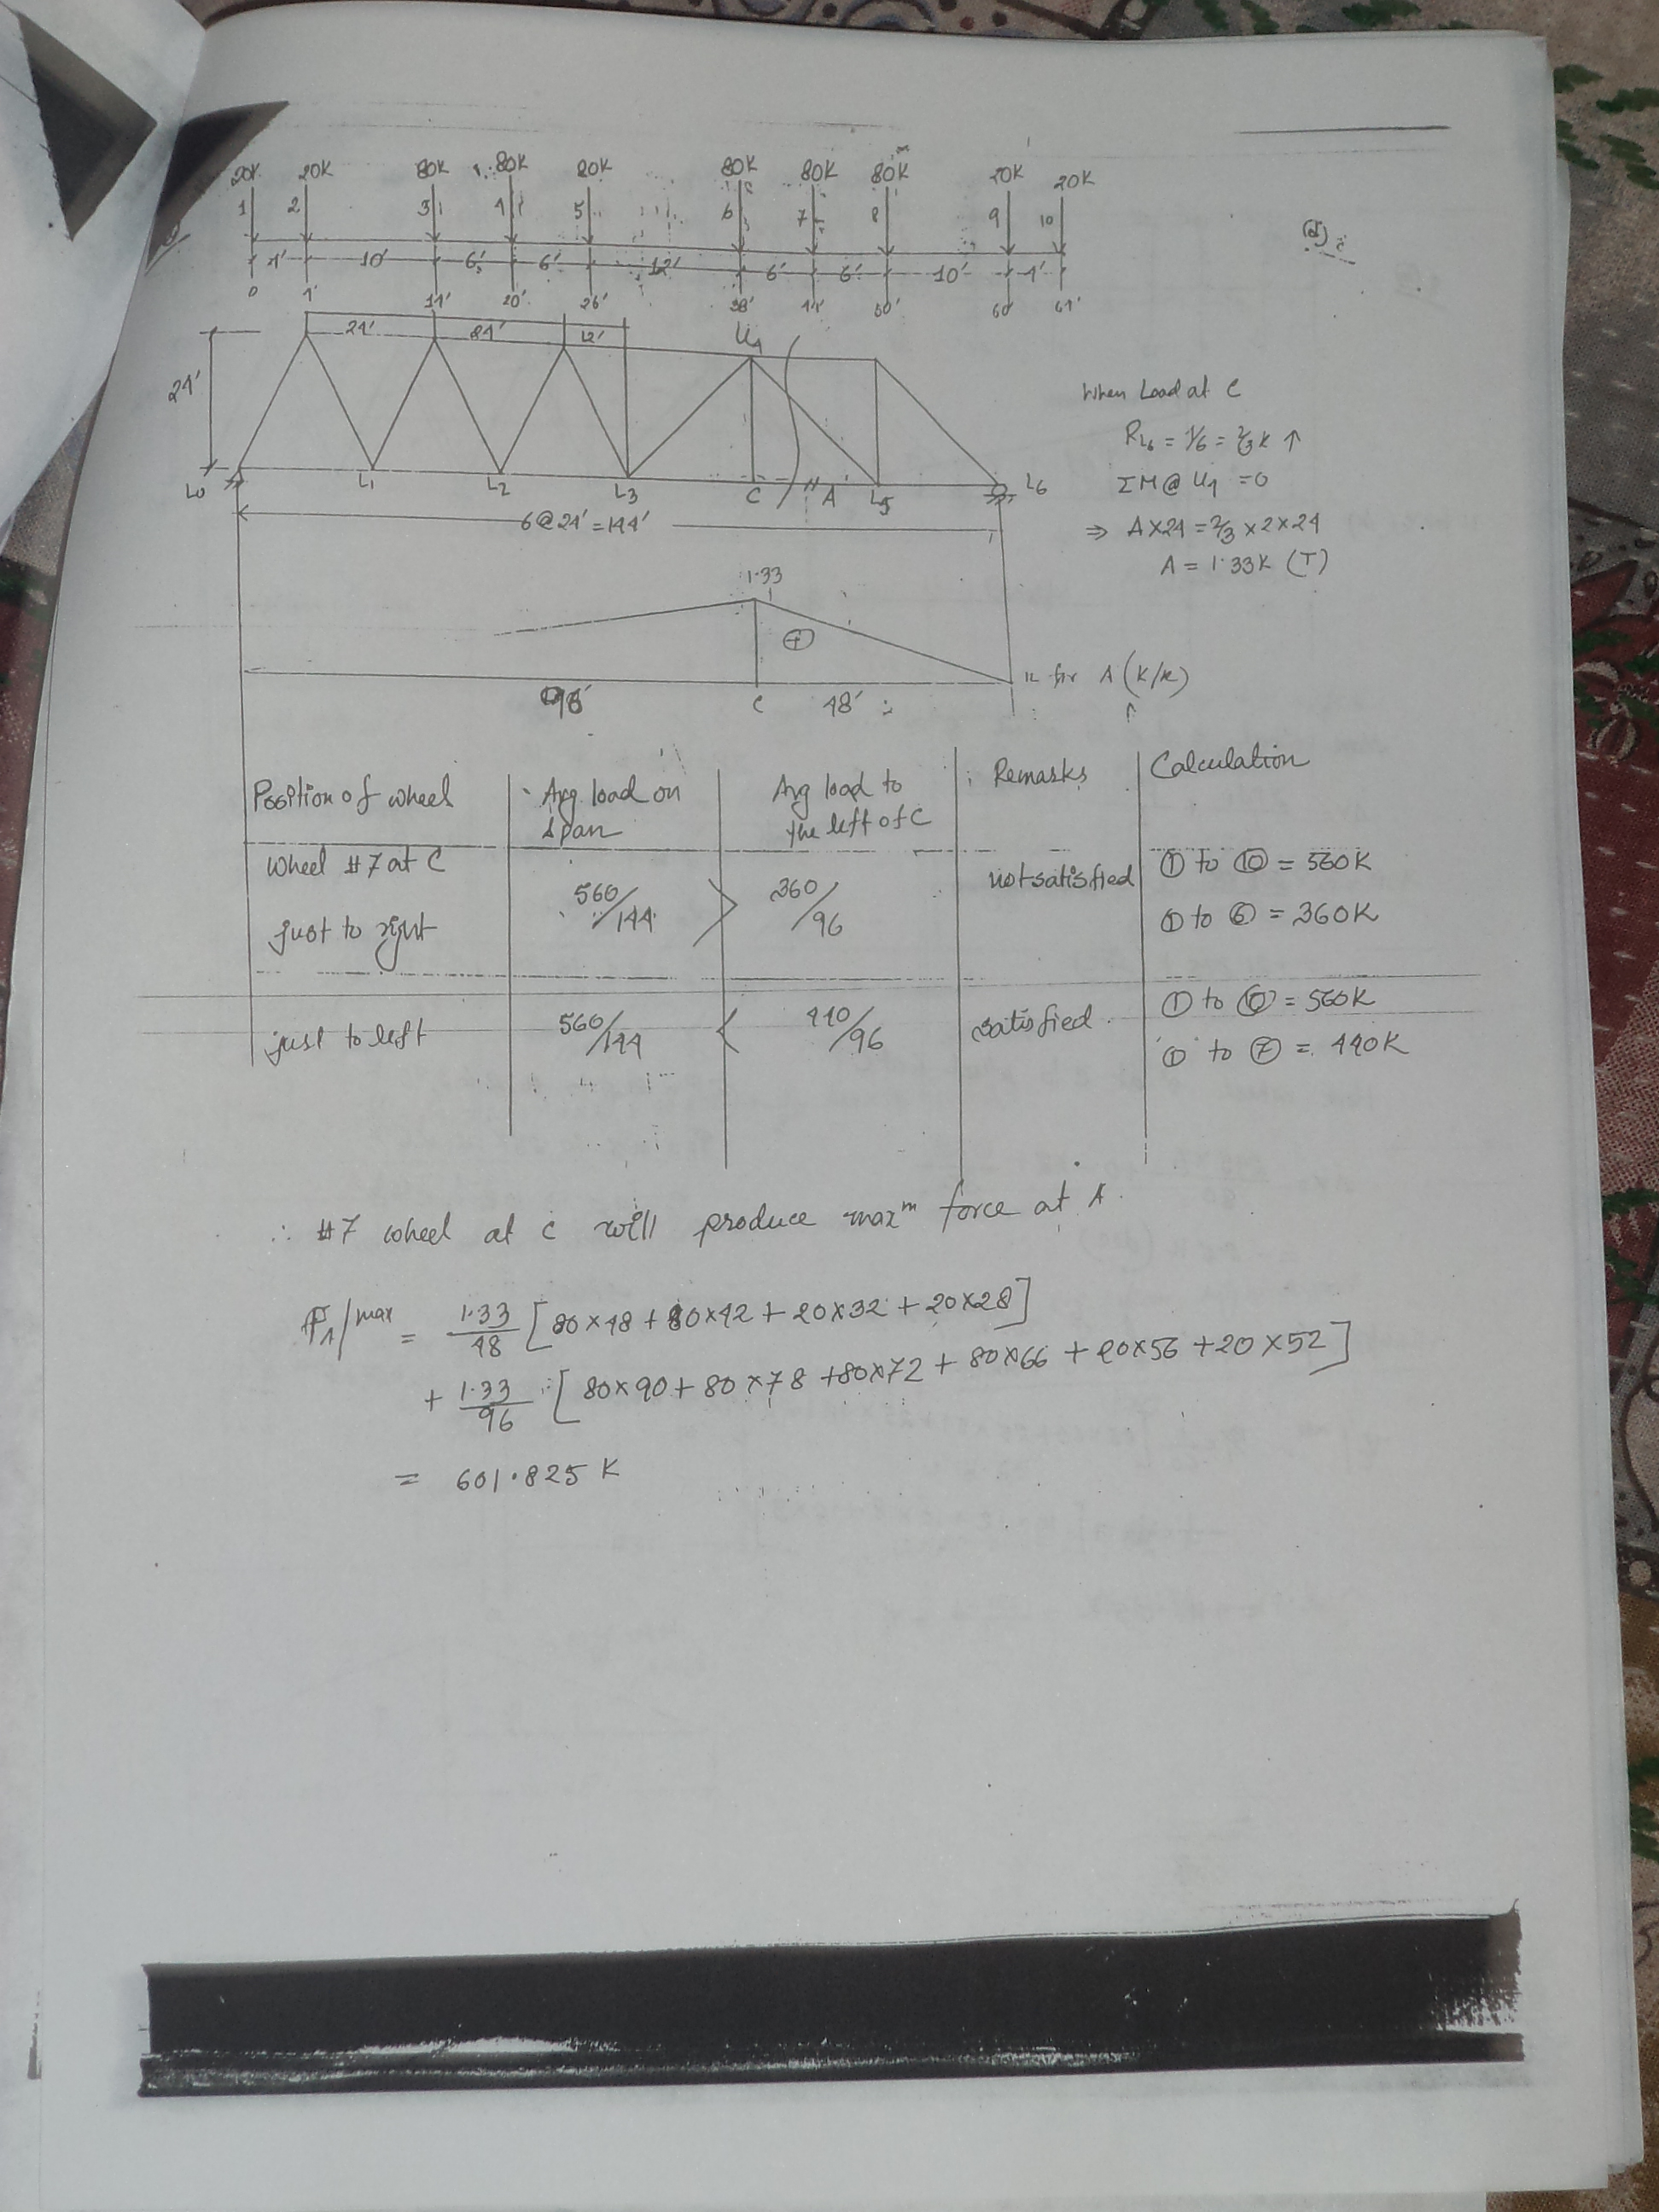 20K 20K 80K 80K 80K 80K 80K 80K 20K 20K
1 2 3 4 5 6 7 8 9 10
4' 10' 6' 6' 12' 6' 6' 10' 4'
0 4' 14' 20' 26' 38' 44' 50' 60' 64'
24' 24' 12' U4
24'
L0 L1 L2 L3 C A L5 L6
6@24'=144'
When Load at C
RL6 = 4/6 = 2/3 K ↑
ΣM@ U4 = 0
⇒ A×24 = 2/3 × 2 × 24
A = 1.33K (T)
1.33
+
IL for A (K/K)
96' C 48'
Position of wheel
Avg load on span
Avg load to the left of C
Remarks
Calculation
Wheel #7 at C
just to right
560/144 > 360/96
not satisfied
① to ⑩ = 560K
① to ⑥ = 360K
just to left
560/144 < 440/96
satisfied
① to ⑩ = 560K
① to ⑦ = 440K
∴ #7 wheel at C will produce maxm force at A.
FA/max = 1.33/48 [80×48 + 80×42 + 20×32 + 20×28]
+ 1.33/96 [80×90 + 80×78 + 80×72 + 80×66 + 20×56 + 20×52]
= 601.825 K